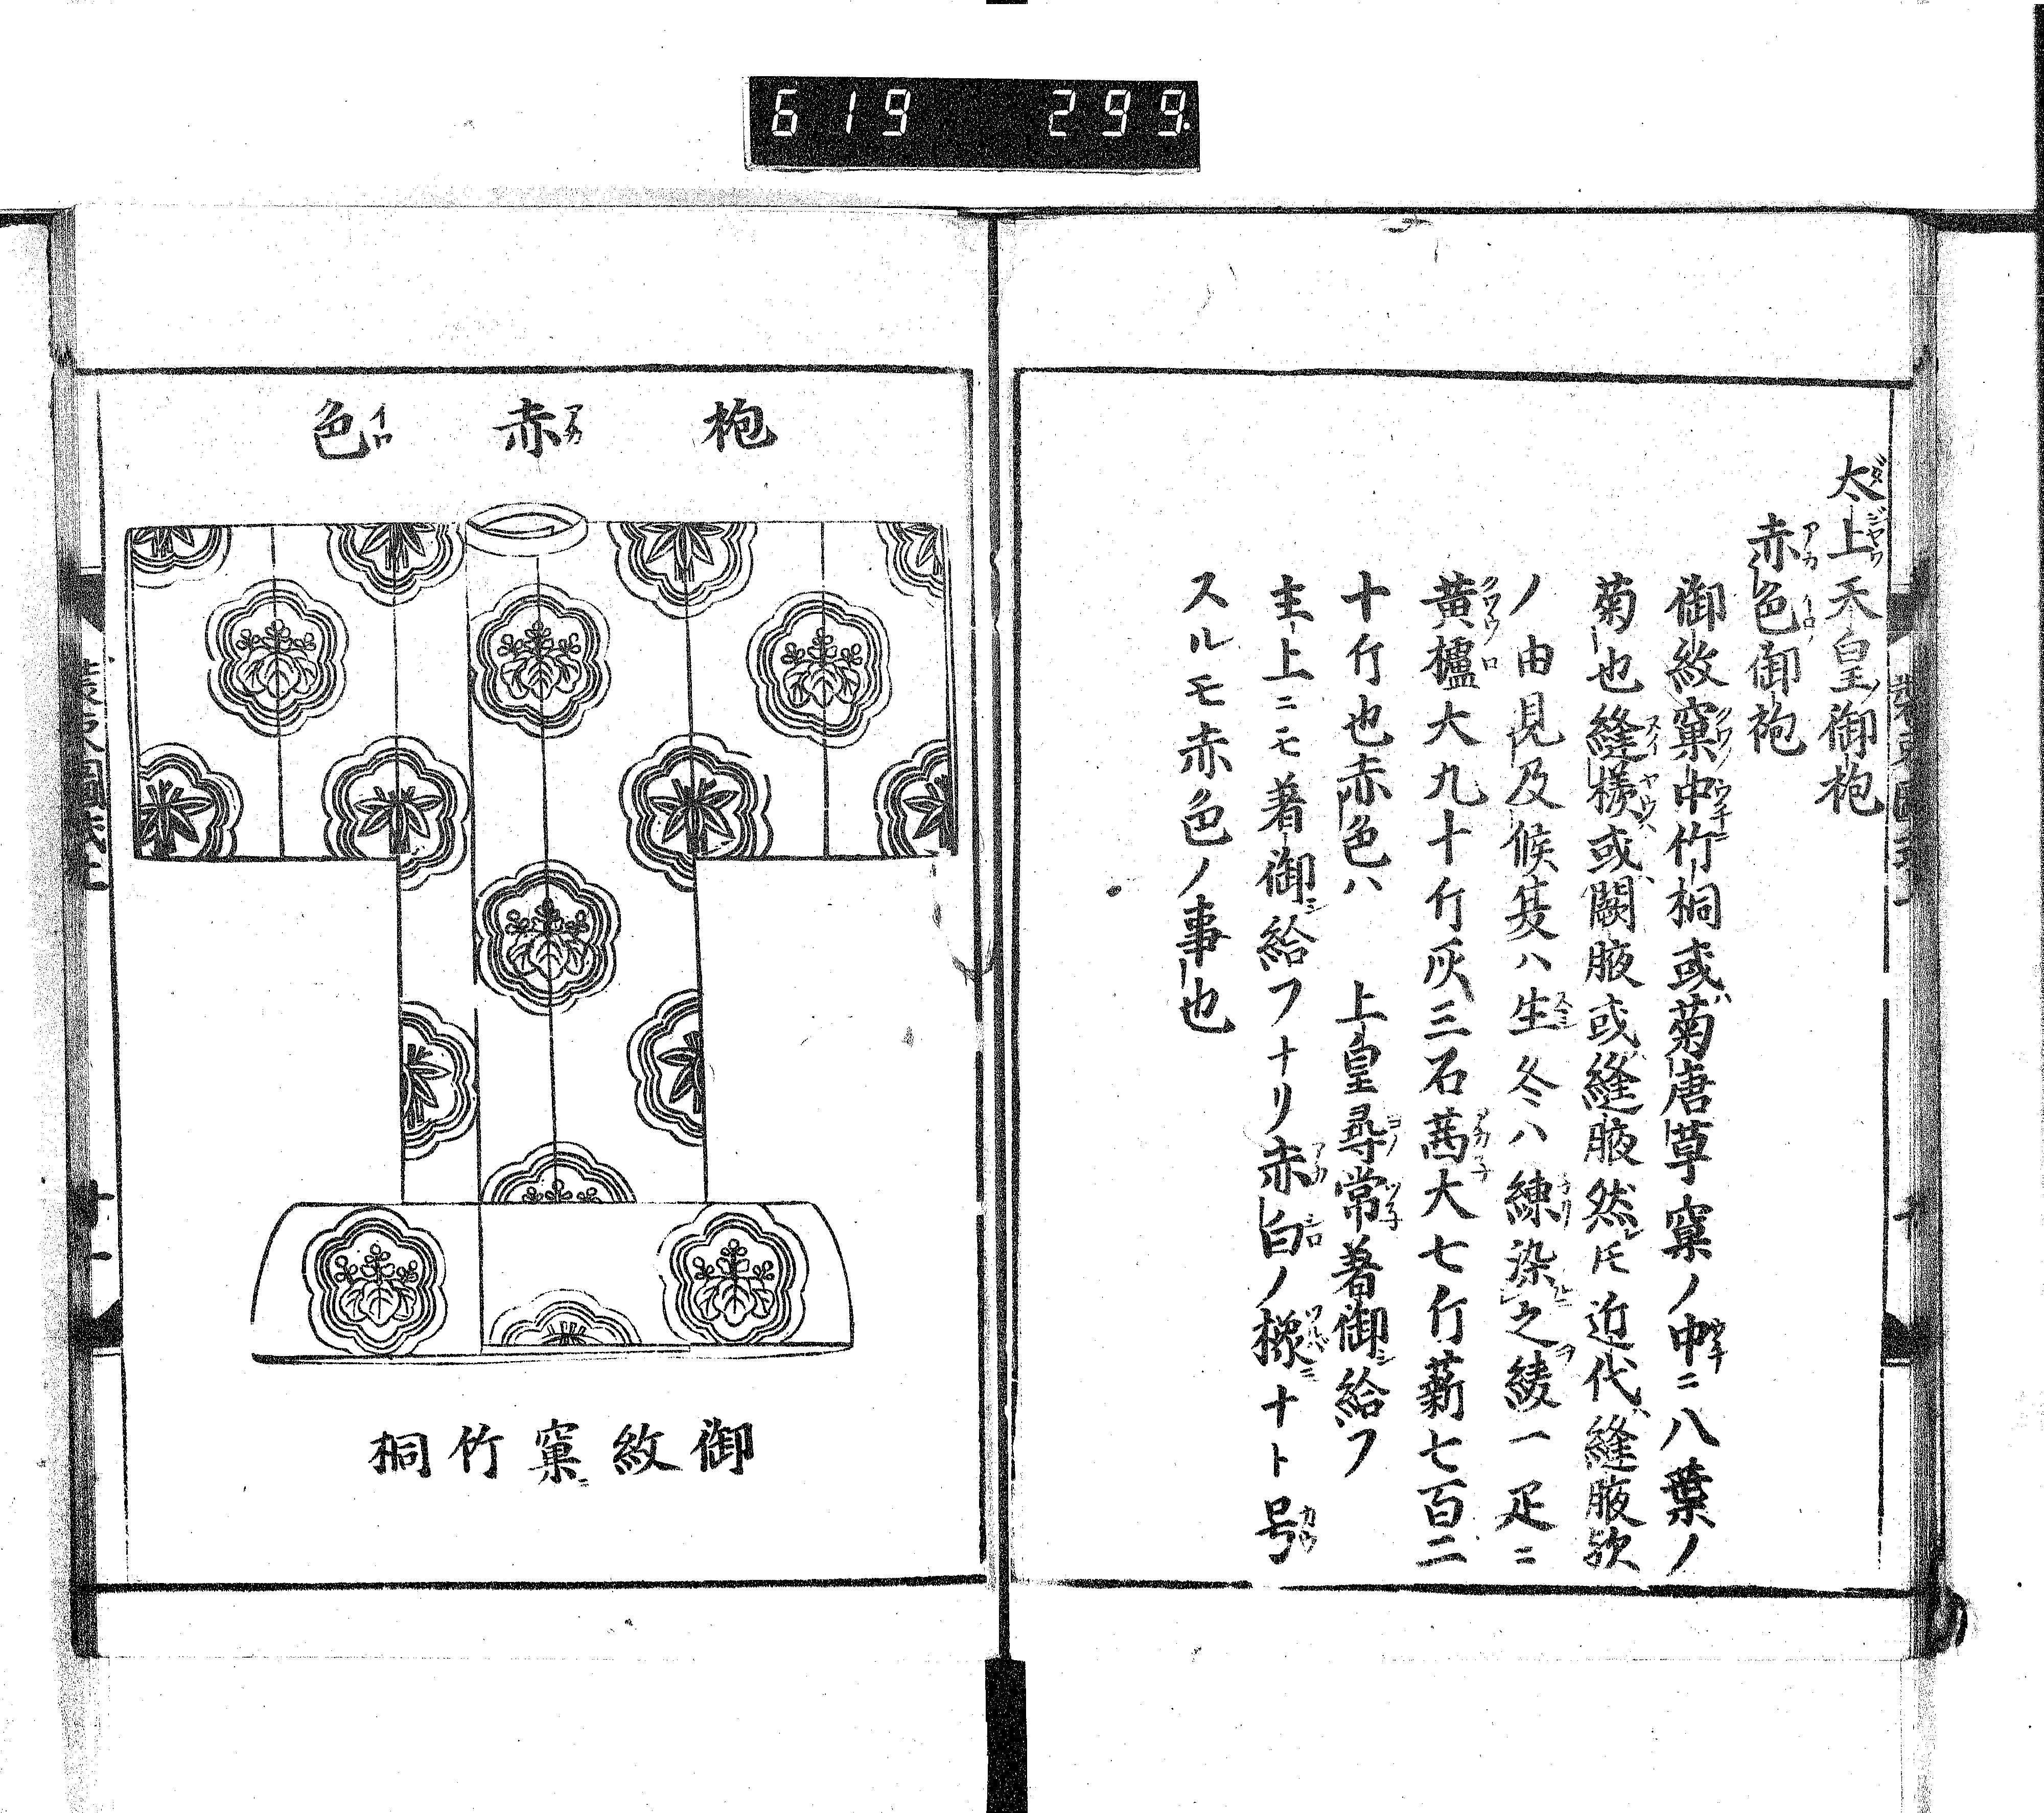 619 299
太上天皇御袍
赤色御袍
御紋窠中竹桐或菊唐草窠ノ中ニ八葉ノ
菊也縫様或闕腋或縫腋然𪜈近代縫腋欤
ノ由見及候夏ハ生冬ハ練染之綾一疋ニ
黄櫨大九十斤灰三石茜大七斤薪七百二
十斤也赤色ハ　上皇尋常着御給フ
主上ニモ着御給フナリ赤白ノ橡ナト号
スルモ赤色ノ事也
袍赤色
御紋窠竹桐